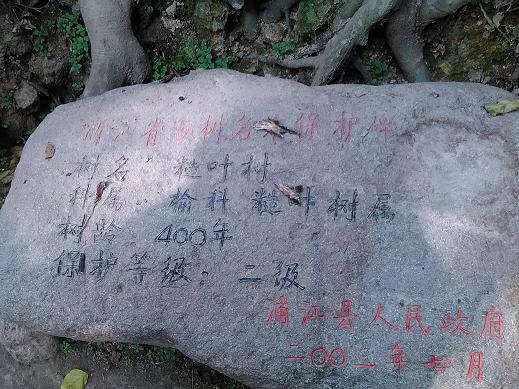 浙江省古树名木保护碑
树名:糙叶树
科属:榆科 糙叶树属
树龄:400年
保护等级:二级
浦江县人民政府
二00二年七月